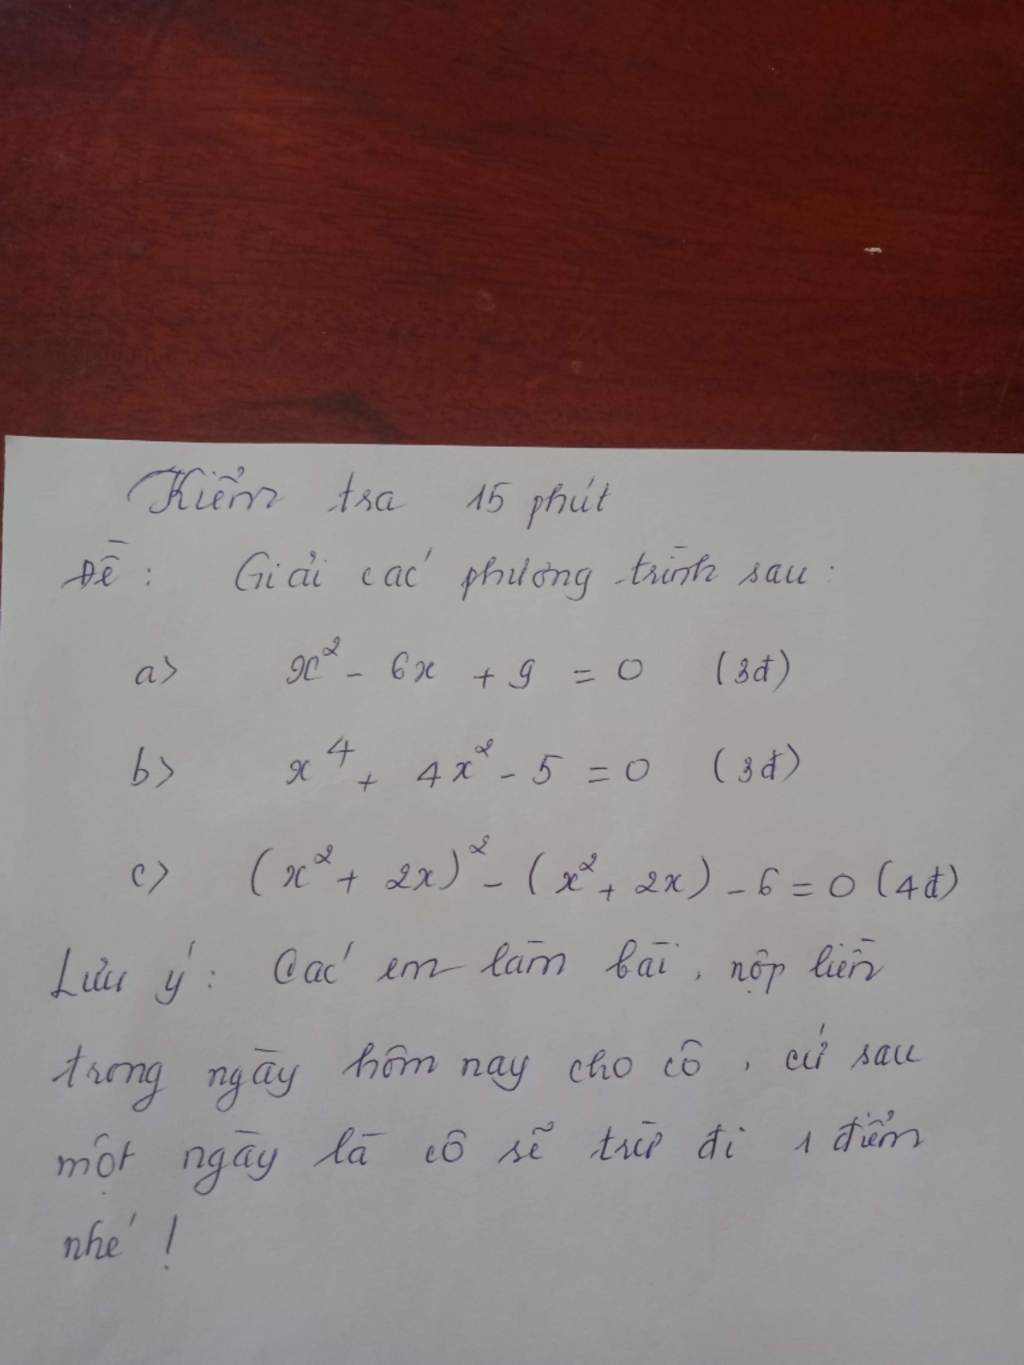 Kiểm tra 15 phút
Đề: Giải các phương trình sau:
a> x² - 6x + 9 = 0 (3đ)
b> x⁴ + 4x² - 5 = 0 (3đ)
c> (x² + 2x)² - (x² + 2x) - 6 = 0 (4đ)
Lưu ý: Các em làm bài, nộp liền
trong ngày hôm nay cho cô, cứ sau
một ngày là cô sẽ trừ đi 1 điểm
nhé!